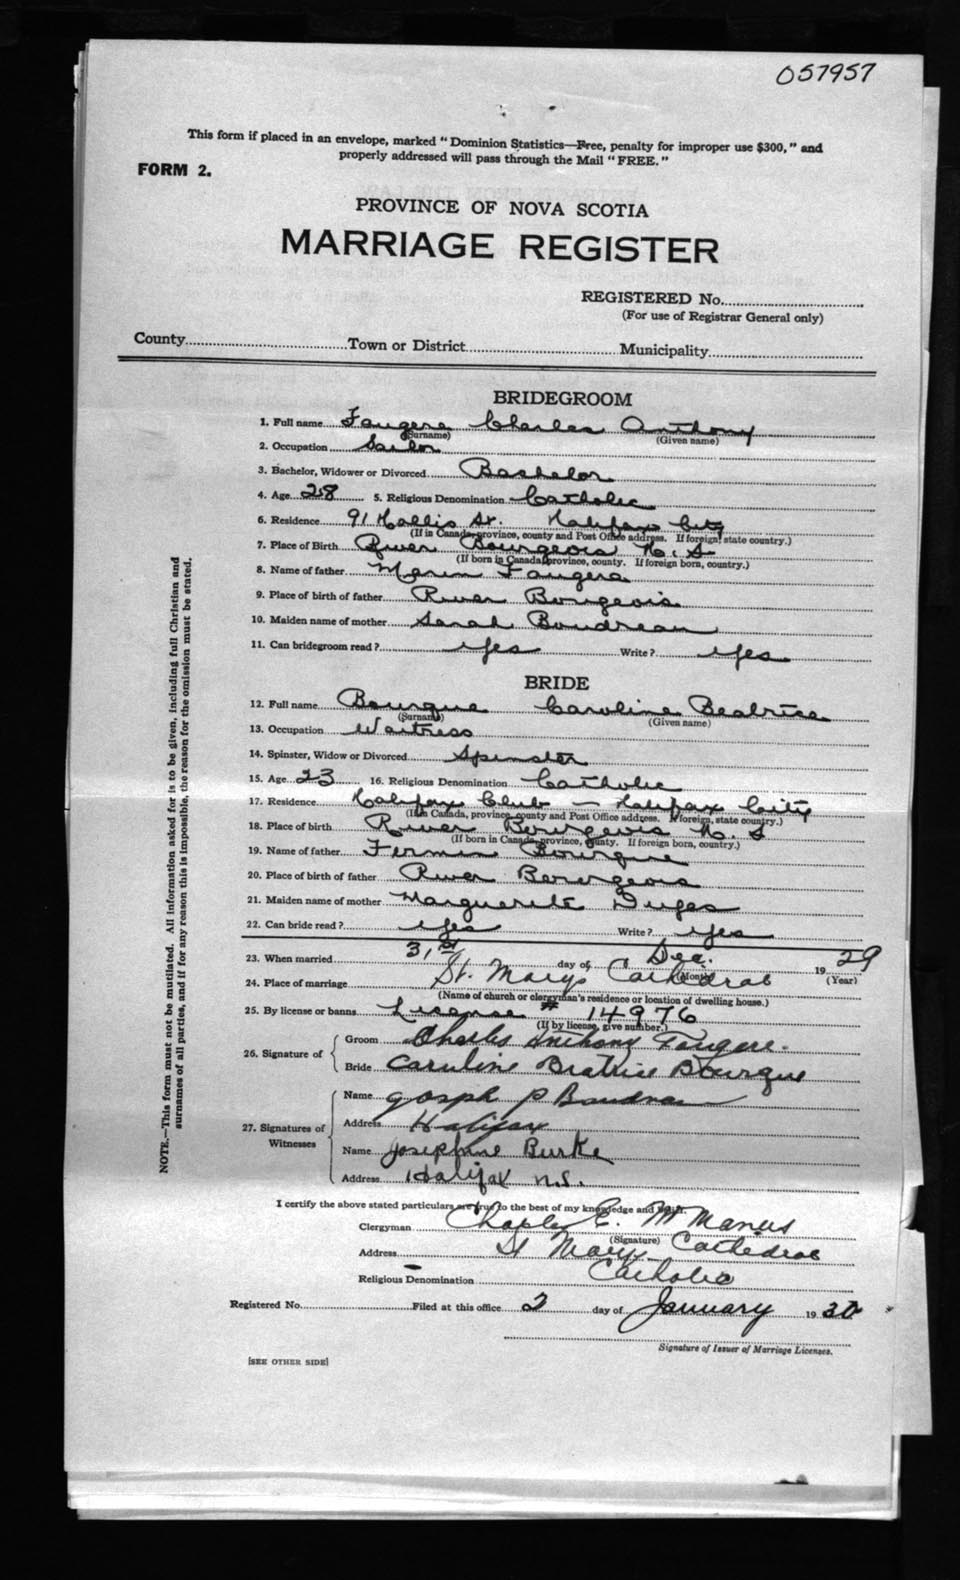 057957
This form if placed in an envelope, marked "Dominion Statistics—Free, penalty for improper use $300," and
properly addressed will pass through the Mail "FREE."
FORM 2.
PROVINCE OF NOVA SCOTIA
MARRIAGE REGISTER
REGISTERED No.
(For use of Registrar General only)
County Town or District Municipality
BRIDEGROOM
1. Full name Faugere Charles Anthony
(Surname) (Given name)
2. Occupation Sailor
3. Bachelor, Widower or Divorced Bachelor
4. Age 28 5. Religious Denomination Catholic
6. Residence 91 Hollis St. Halifax City
(If in Canada, province, county and Post Office address. If foreign, state country.)
7. Place of Birth River Bourgeois N. S
(If born in Canada, province, county. If foreign born, country.)
8. Name of father Faugere
9. Place of birth of father River Bourgeois
10. Maiden name of mother Sarah Boudreau
11. Can bridegroom read? Yes Write? Yes
BRIDE
12. Full name Bourque Caroline Beatrice
(Surname) (Given name)
13. Occupation Waitress
14. Spinster, Widow or Divorced Spinster
15. Age 23 16. Religious Denomination Catholic
17. Residence Halifax Club — Halifax City
(If in Canada, province, county and Post Office address. If foreign, state country.)
18. Place of birth River Bourgeois N. S
(If born in Canada, province, county. If foreign born, country.)
19. Name of father Fermin Bourque
20. Place of birth of father River Bourgeois
21. Maiden name of mother Marguerite
22. Can bride read? Yes Write? Yes
23. When married 31st day of Dec. 1929
(Month) (Year)
24. Place of marriage St. Marys Cathedral
(Name of church or clergyman's residence or location of dwelling house.)
25. By license or banns License # 14976
(If by license, give number.)
26. Signature of Groom Charles Anthony Fougere.
Bride Caroline Beatrice Bourque
27. Signatures of Witnesses Name Joseph P Boudreau
Address Halifax
Name Josephine Burke
Address Halifax N.S.
I certify the above stated particulars are true to the best of my knowledge and belief.
Clergyman Charles E. McManus
(Signature)
Address St Marys Cathedral
Religious Denomination Catholic
Registered No. Filed at this office 2 day of January 1930
Signature of Issuer of Marriage Licenses.
[SEE OTHER SIDE]
NOTE.—This form must not be mutilated. All information asked for is to be given, including full Christian and
surnames of all parties, and if for any reason this is impossible, the reason for the omission must be stated.